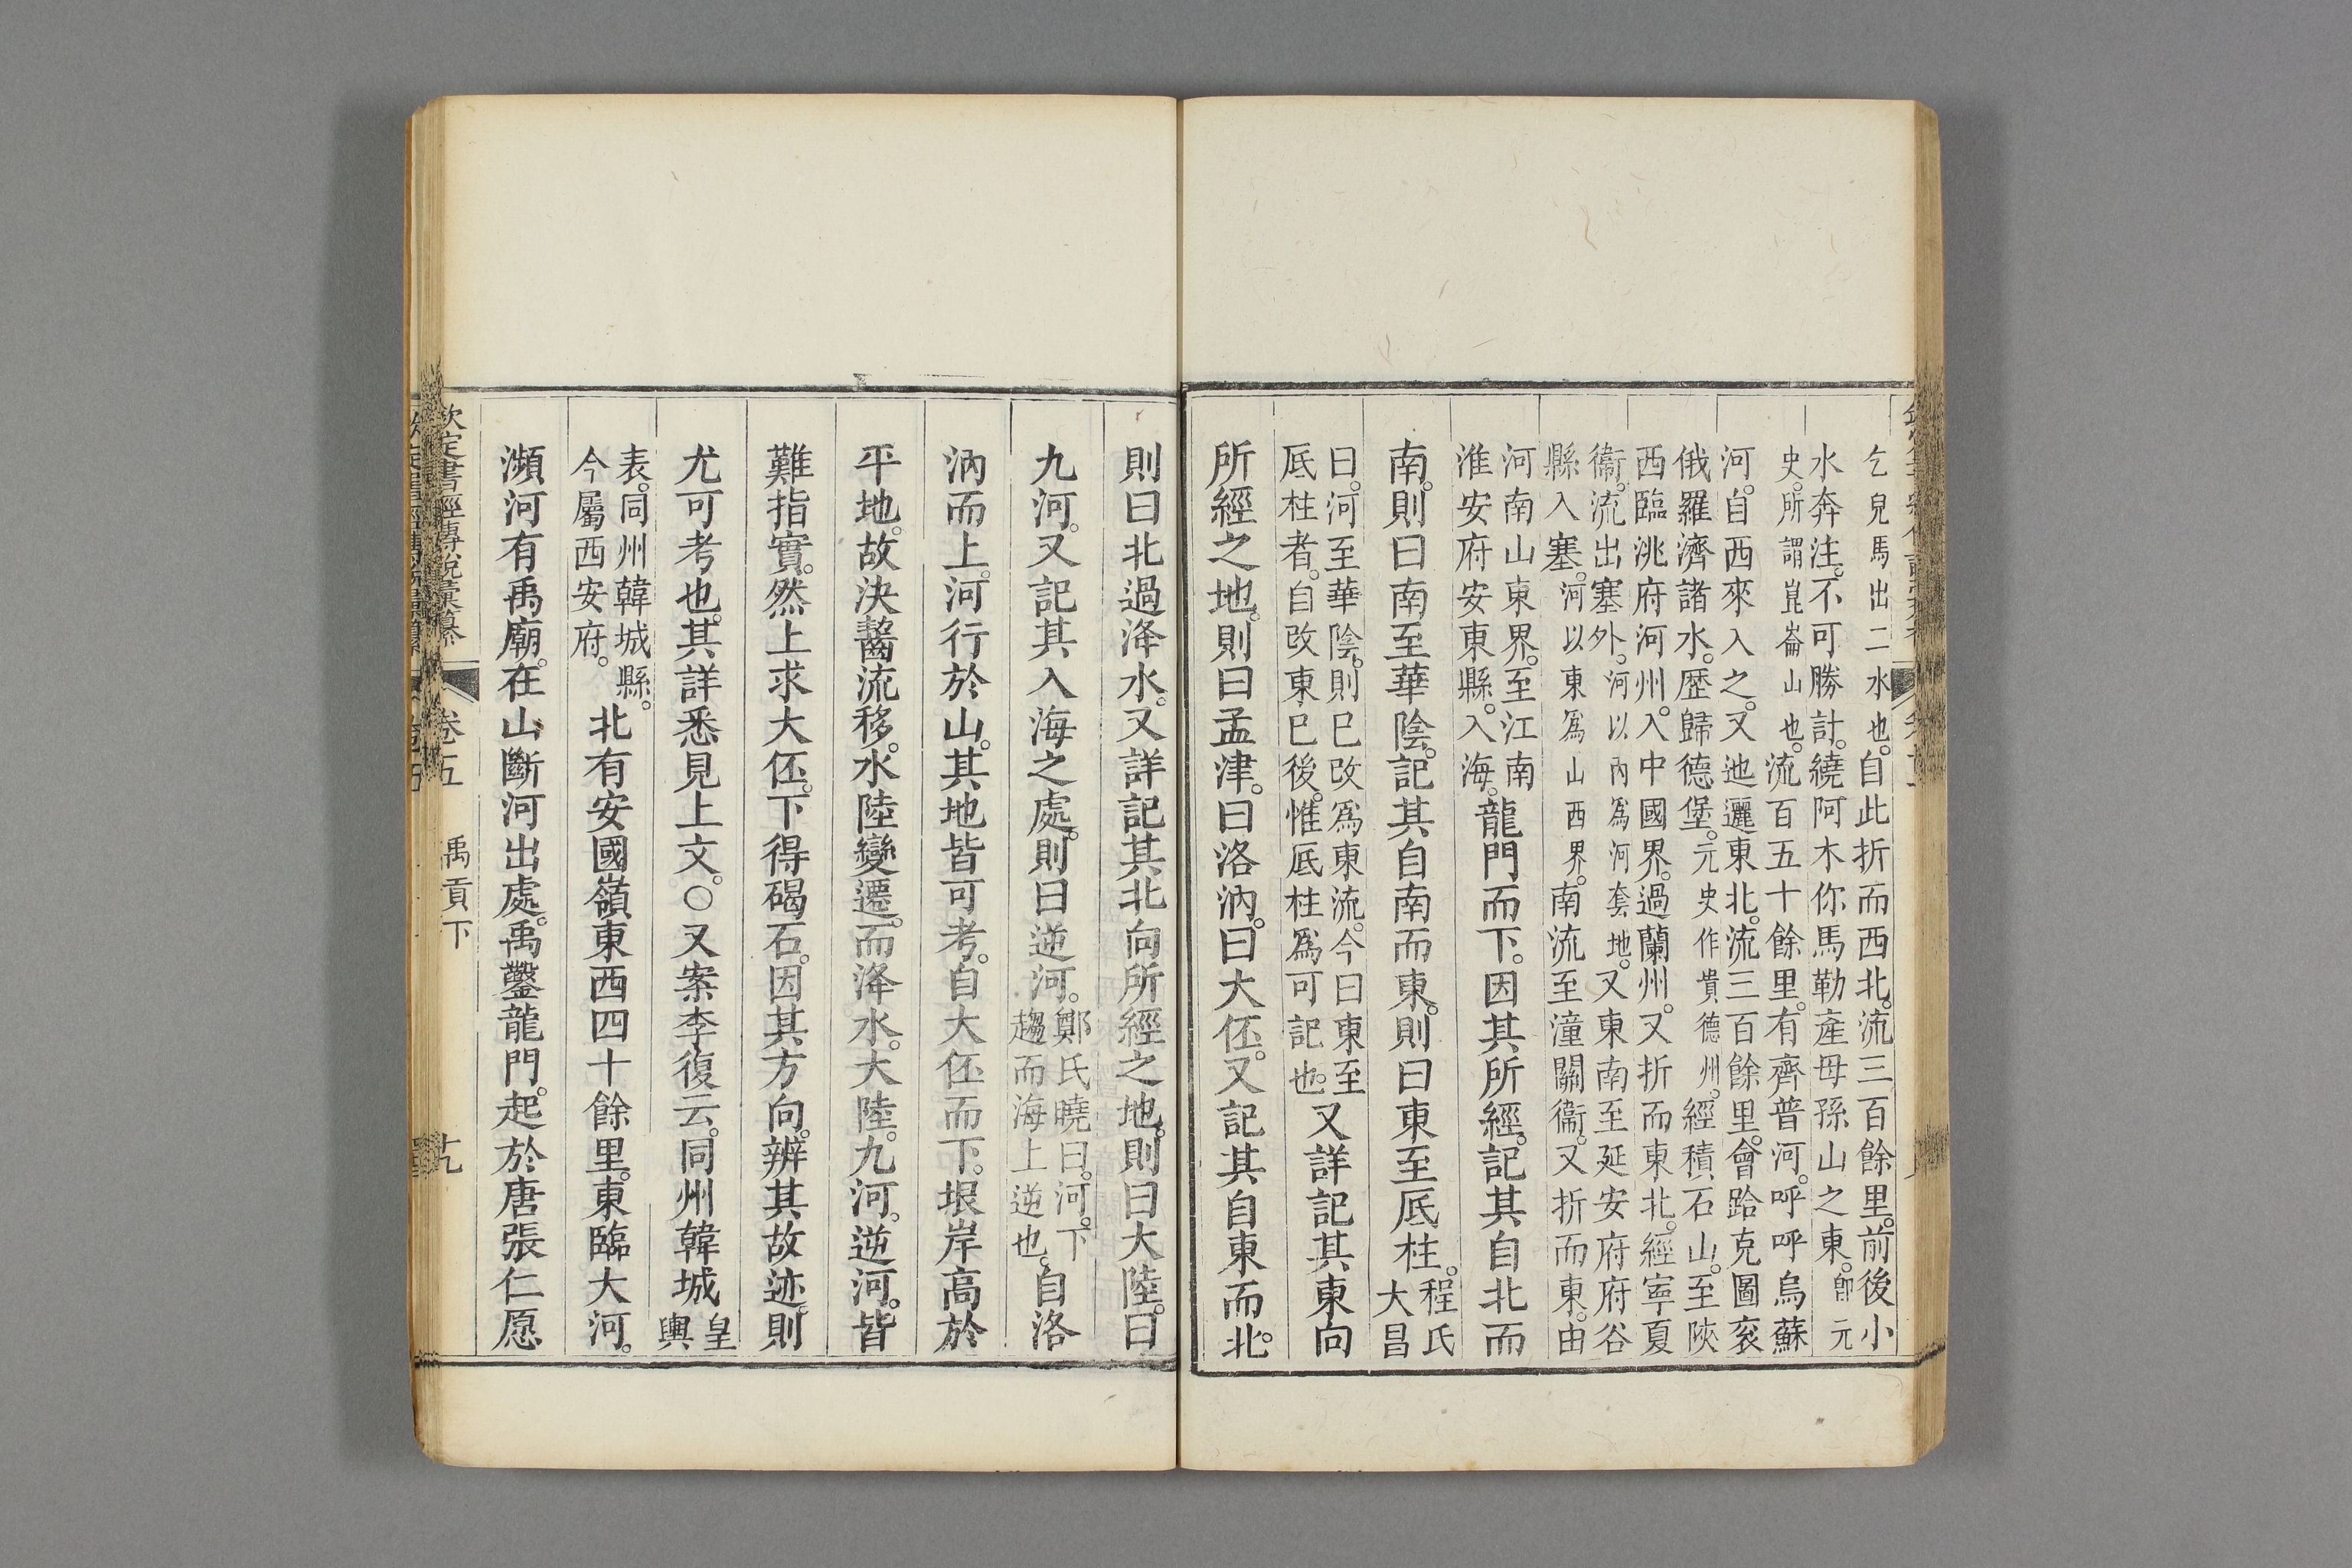 乞兒馬出二水也。自此折而西北。流三百餘里。前後小
水奔注。不可勝計。繞阿木你馬勒產母孫山之東。卽元
史。所謂崑崙山也。流百五十餘里。有齊普河。呼呼烏蘇
河。自西來入之。又迆邐東北。流三百餘里。會跲克圖袞
俄羅濟諸水。歷歸德堡。元史作貴德州。經積石山。至陝
西臨洮府河州。入中國界。過蘭州。又折而東北。經寧夏
衞。流出塞外。河以內爲河套地。又東南至延安府府谷
縣入塞。河以東爲山西界。南流至潼關衞。又折而東。由
河南山東界。至江南
淮安府安東縣。入海。龍門而下。因其所經。記其自北而
南。則曰南至華陰。記其自南而東。則曰東至厎柱。程氏
大昌
曰。河至華陰。則已改爲東流。今曰東至
厎柱者。自改東已後。惟厎柱爲可記也。又詳記其東向
所經之地。則曰孟津。曰洛汭。曰大伾。又記其自東而北。
則曰北過洚水。又詳記其北向所經之地。則曰大陸。曰
九河。又記其入海之處。則曰逆河。鄭氏曉曰。河。下
趨而海上逆也。自洛
汭而上。河行於山。其地皆可考。自大伾而下。垠岸高於
平地。故決齧流移。水陸變遷。而洚水。大陸。九河。逆河。皆
難指實。然上求大伾。下得碣石。因其方向。辨其故迹。則
尤可考也。其詳悉見上文。○又案李復云。同州韓城皇
輿
表。同州韓城縣。
今屬西安府。北有安國嶺東西四十餘里。東臨大河。
瀕河有禹廟。在山斷河出處。禹鑿龍門。起於唐張仁愿
欽定書經傳說彙纂 卷五 禹貢下 十九